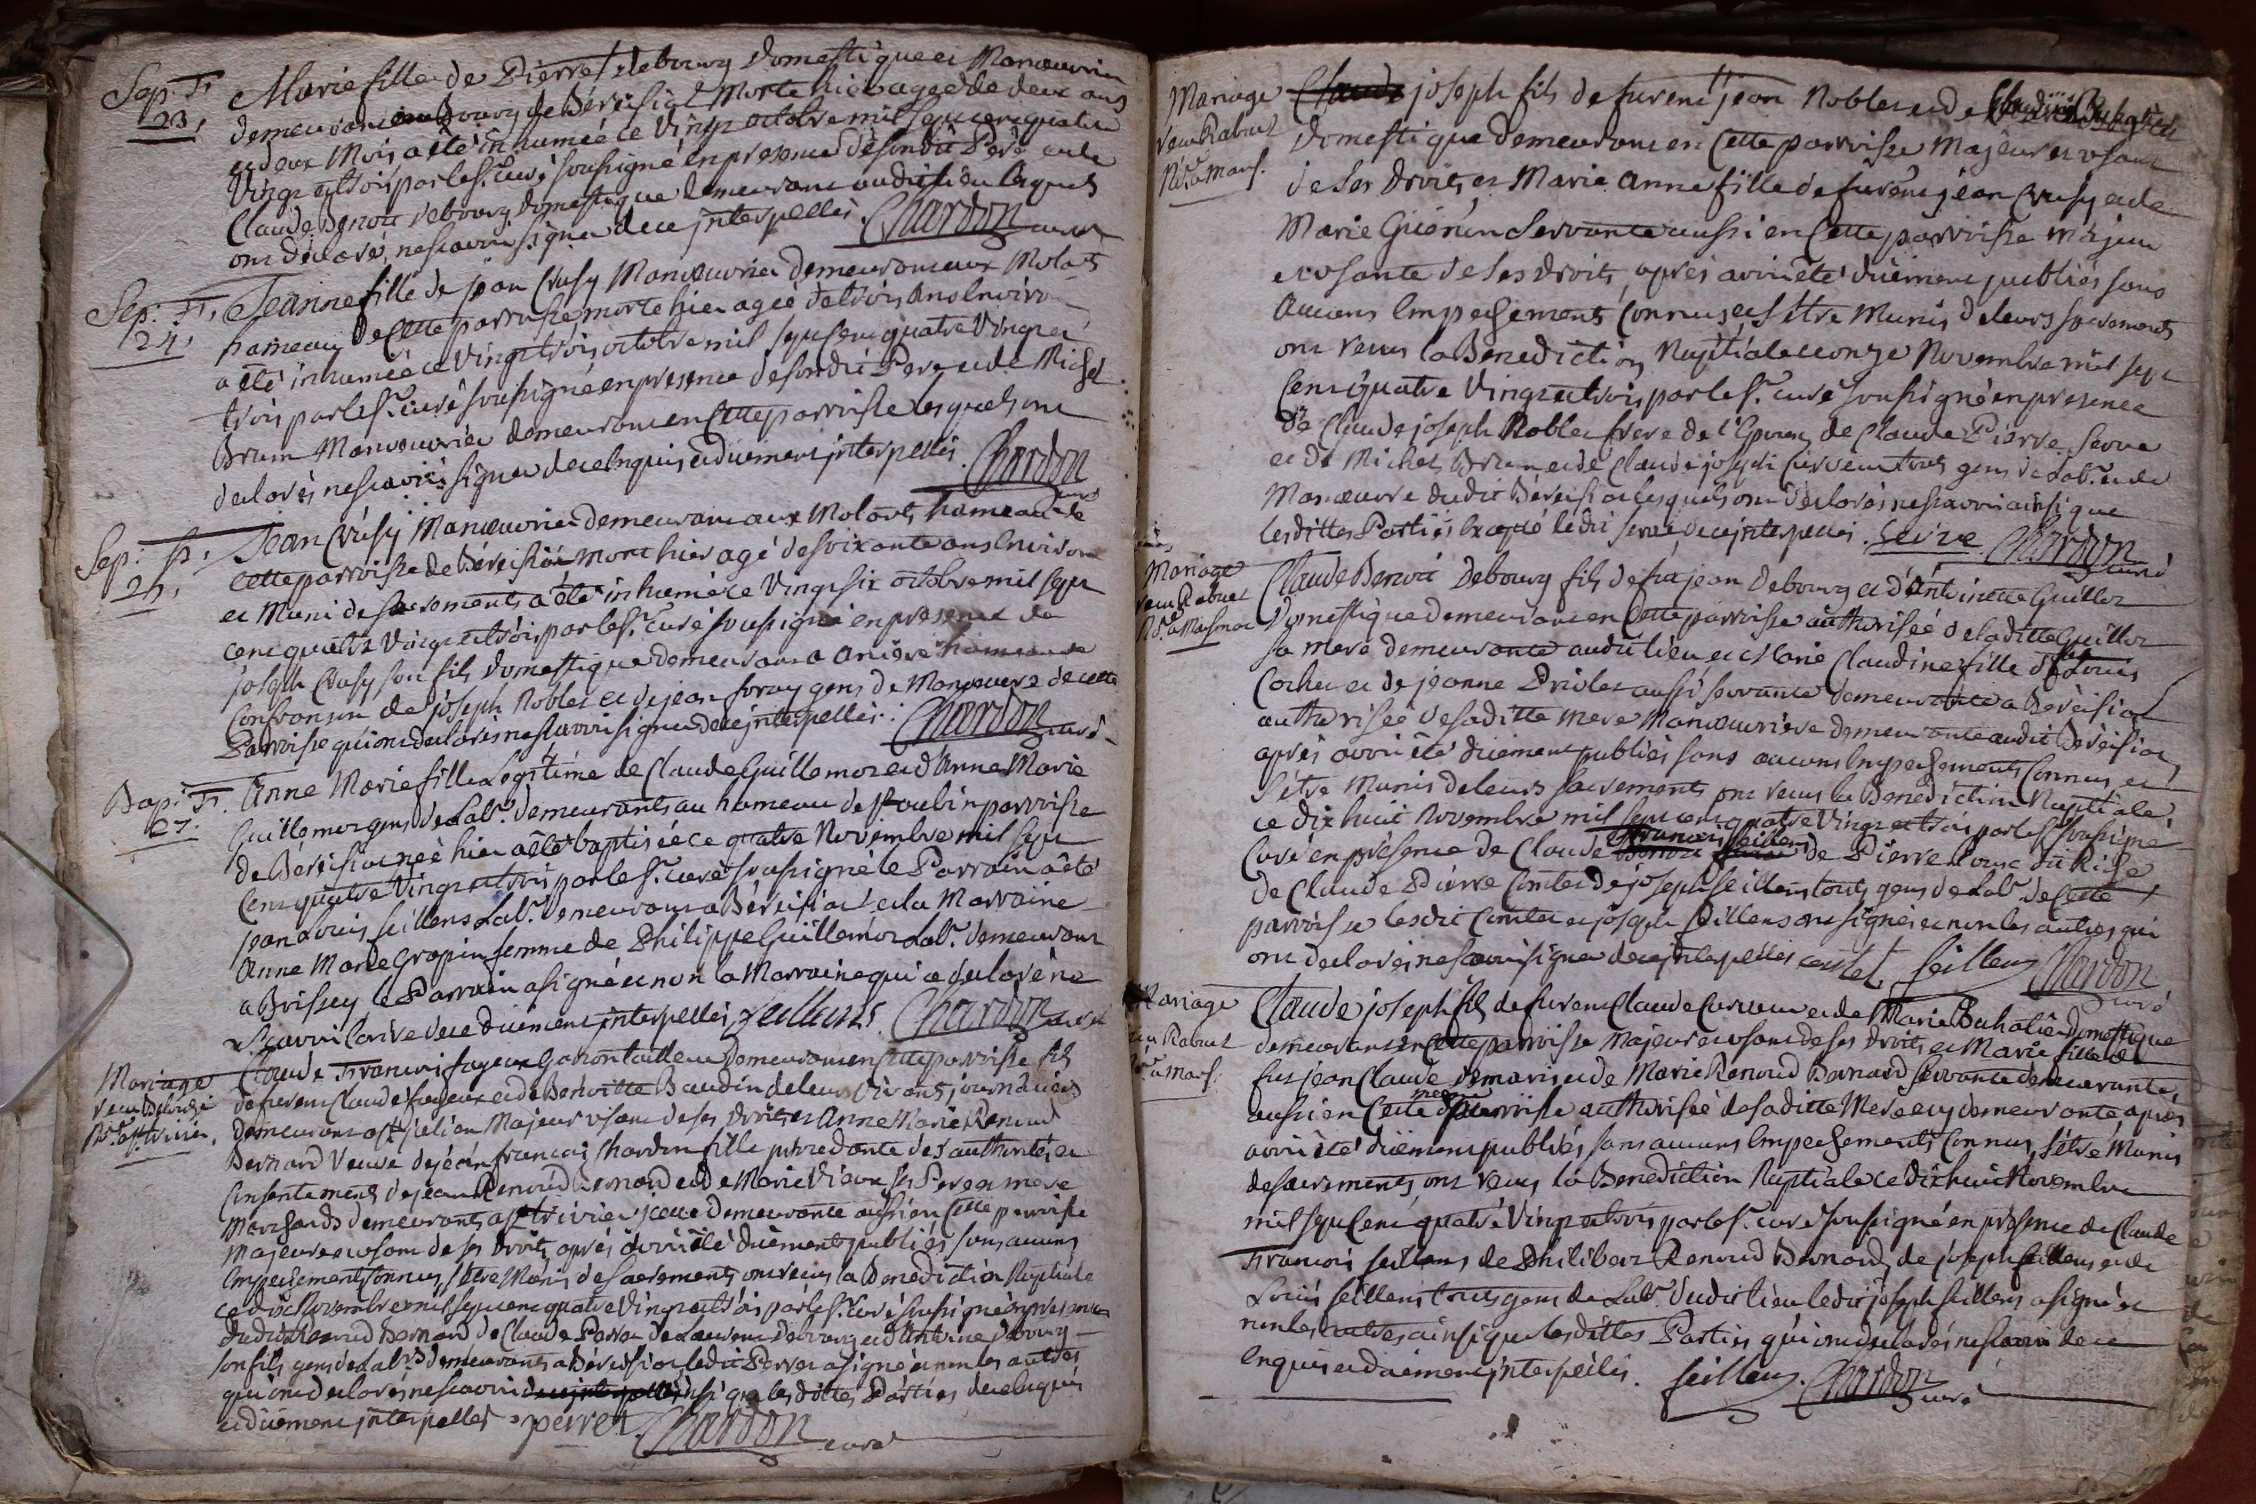 Sep. fs
23.
Marie fille de Pierre debourg domestique et Manœuvrier
demeurant au Bourg de Béreisiat Morte hier agée de deux ans
et deux Mois a été inhumée ce Vingt octobre mil sept cent quatre
Vingt et trois par le Sr. curé soussigné en presence desondit Pere et de
Claude Benoit debourg domestique demeurant audit lieu lesquels
ont déclarés nescavoir signer de ce interpellés. Chardon curé
Sep. fs.
24.
Jeanne fille de jean Crusy Manœuvrier demeurant aux Molards
hameau de Cette parroisse morte hier agée de trois Ans Environ
a été inhumée ce Vingt trois octobre mil sept cent quatre Vingt et
trois par le Sr. curé soussigné en presence desondit Pere et de Michel
Brun Manœuvrier demeurant en Cette parroisse lesquels ont
declarés nescavoir signer de ce Enquis et duement interpellés. Chardon
curé
Sep. fs.
25.
Jean Crusy Manœuvrier demeurant aux Molards hameau de
Cette parroisse de Béreisiat mort hier agé de soixante ans Environ
et Muni de sacrements a été inhumé ce Vingt six octobre mil sept
cent quatre Vingt et trois par le Sr. curé soussigné en presence de
joseph Crusy son fils domestique demeurant a
de joseph Roblet et de jean foray gens de Manœuvre de cette
Parroisse qui ont declarés nescavoir signer de ce interpellés. Chardon curé
Bap. fs.
27.
Anne Marie fille Legitime de Claude Guillemot et d'Anne Marie
Guillemot gens de Labr. demeurants au hameau de parroisse
de Béreisiat née hier a été baptisée ce quatre Novembre mil sept
Cent quatre Vingt et trois par le Sr. curé soussigné le Parrain a été
jean Louis seillens Labr. demeurant a Béreisiat et la Marraine
Anne Marie Gropin femme de Philippe Guillemot Labr. demeurant
a Brissey le Parrain a signé et non la Marraine qui a declaré ne
scavoir Ecrire de ce duement interpellés seillens. Chardon curé
Mariage
Claude francois fageux demeurant en Cette parroisse fils
de furent Claude fageux et de Benoitte Baudin de leurs Vivants journaliers
demeurant a st julien Majeur usant de ses droits et Anne Marie Renoud
Bernard Veuve de jean francois Chardon fille procedante de l'authorité et
Consentement de jean Renoud Bernard et de Marie Vieux ses Pere et mere
Marchands demeurants a st trivier icelle demeurante aussi en Cette parroisse
Majeure et usant de ses droits après avoir été duement publiés sans aucuns
Empechements Connus s'être Munis de sacrements ont recus la Benediction Nuptiale
ce dix Novembre mil sept cent quatre Vingt et trois par le Sr. Curé soussigné en presence
dudit Renoud Bernard de Claude Perret de Laurent debourg et d'Antoine debourg
son fils gens de Labr. demeurants a Béreisiat ledit Perret a signé et non les autres
qui ont declarés nescavoir ainsi que les dittes Parties de ce Enquis
et duement interpellés. perret. Chardon curé
Mariage
joseph fils de furent jean Roblet et de
domestique demeurant en Cette parroisse Majeur et usant
de ses Droits et Marie Anne fille de furent jean Crusy et de
Marie Guérin servante aussi en Cette parroisse Majeure
et usante de ses Droits, après avoir été duement publiés sans
Aucuns Empechements Connus et s'être Munis de leurs sacrements
ont recus la Benediction Nuptiale ce onze Novembre mil sept
Cent quatre Vingt et trois par le Sr. curé soussigné en presence
de Claude joseph Roblet frere de l'Epoux, de Claude Pierre Serve
et de Michel Brun et de Claude joseph Curveur tous gens de Labr. et de
Manœuvre dudit Béreisiat lesquels ont déclarés nescavoir ainsi que
les dittes Parties Excepté ledit serve de ce interpellés. Serve Chardon
curé
Mariage
Claude Benoit Debourg fils de fut jean debourg et d'Antoinette Guillot
Domestique demeurant en Cette parroisse authorisé de laditte Guillot
sa mere demeurante audit lieu et Marie Claudine fille de Louis
Cochet et de jeanne Driolet aussi servante demeurante a Béréisiat
authorisée desaditte mere Manœuvriere demeurante audit Béréisiat
après avoir été duement publiés sans aucuns Empechements Connus et
s'être Munis de leurs sacrements ont recus la Benediction Nuptiale
ce dix huit Novembre mil sept cent quatre Vingt et trois par le Sr. soussigné
Curé en présence de Claude francois seillens de Pierre
de Claude Pierre Comtet de joseph seillens touts gens de Labr. de Cette
parroisse lesdit Comtet et joseph seillens ont signés et non les autres qui
ont declarés nescavoir signer de ce interpellés comtet seillens Chardon
curé
Mariage
Claude joseph fils de furent Claude Curveur et de Marie Buhatier domestique
demeurant en Cette parroisse Majeur et usant de ses Droits et Marie fille de
fut jean Claude demaris et de Marie Renoud Bernard servante demeurante
aussi en Cette meme parroisse authorisée desaditte Mere et y demeurante après
avoir été duement publiés sans aucuns Empechements Connus, s'être Munis
de sacrements ont recus la Benediction Nuptiale ce dix huit Novembre
mil sept Cent quatre Vingt et trois par le Sr. curé soussigné en presence de Claude
francois seillens de Philibert Renoud Bernard, de joseph seillens et de
Louis seillens touts gens de Labr. dudit lieu ledit joseph seillens a signé et
non les autres ainsi que lesdittes Parties qui ont declarés nescavoir de ce
Enquis et duement interpellés. seillens. Chardon
curé